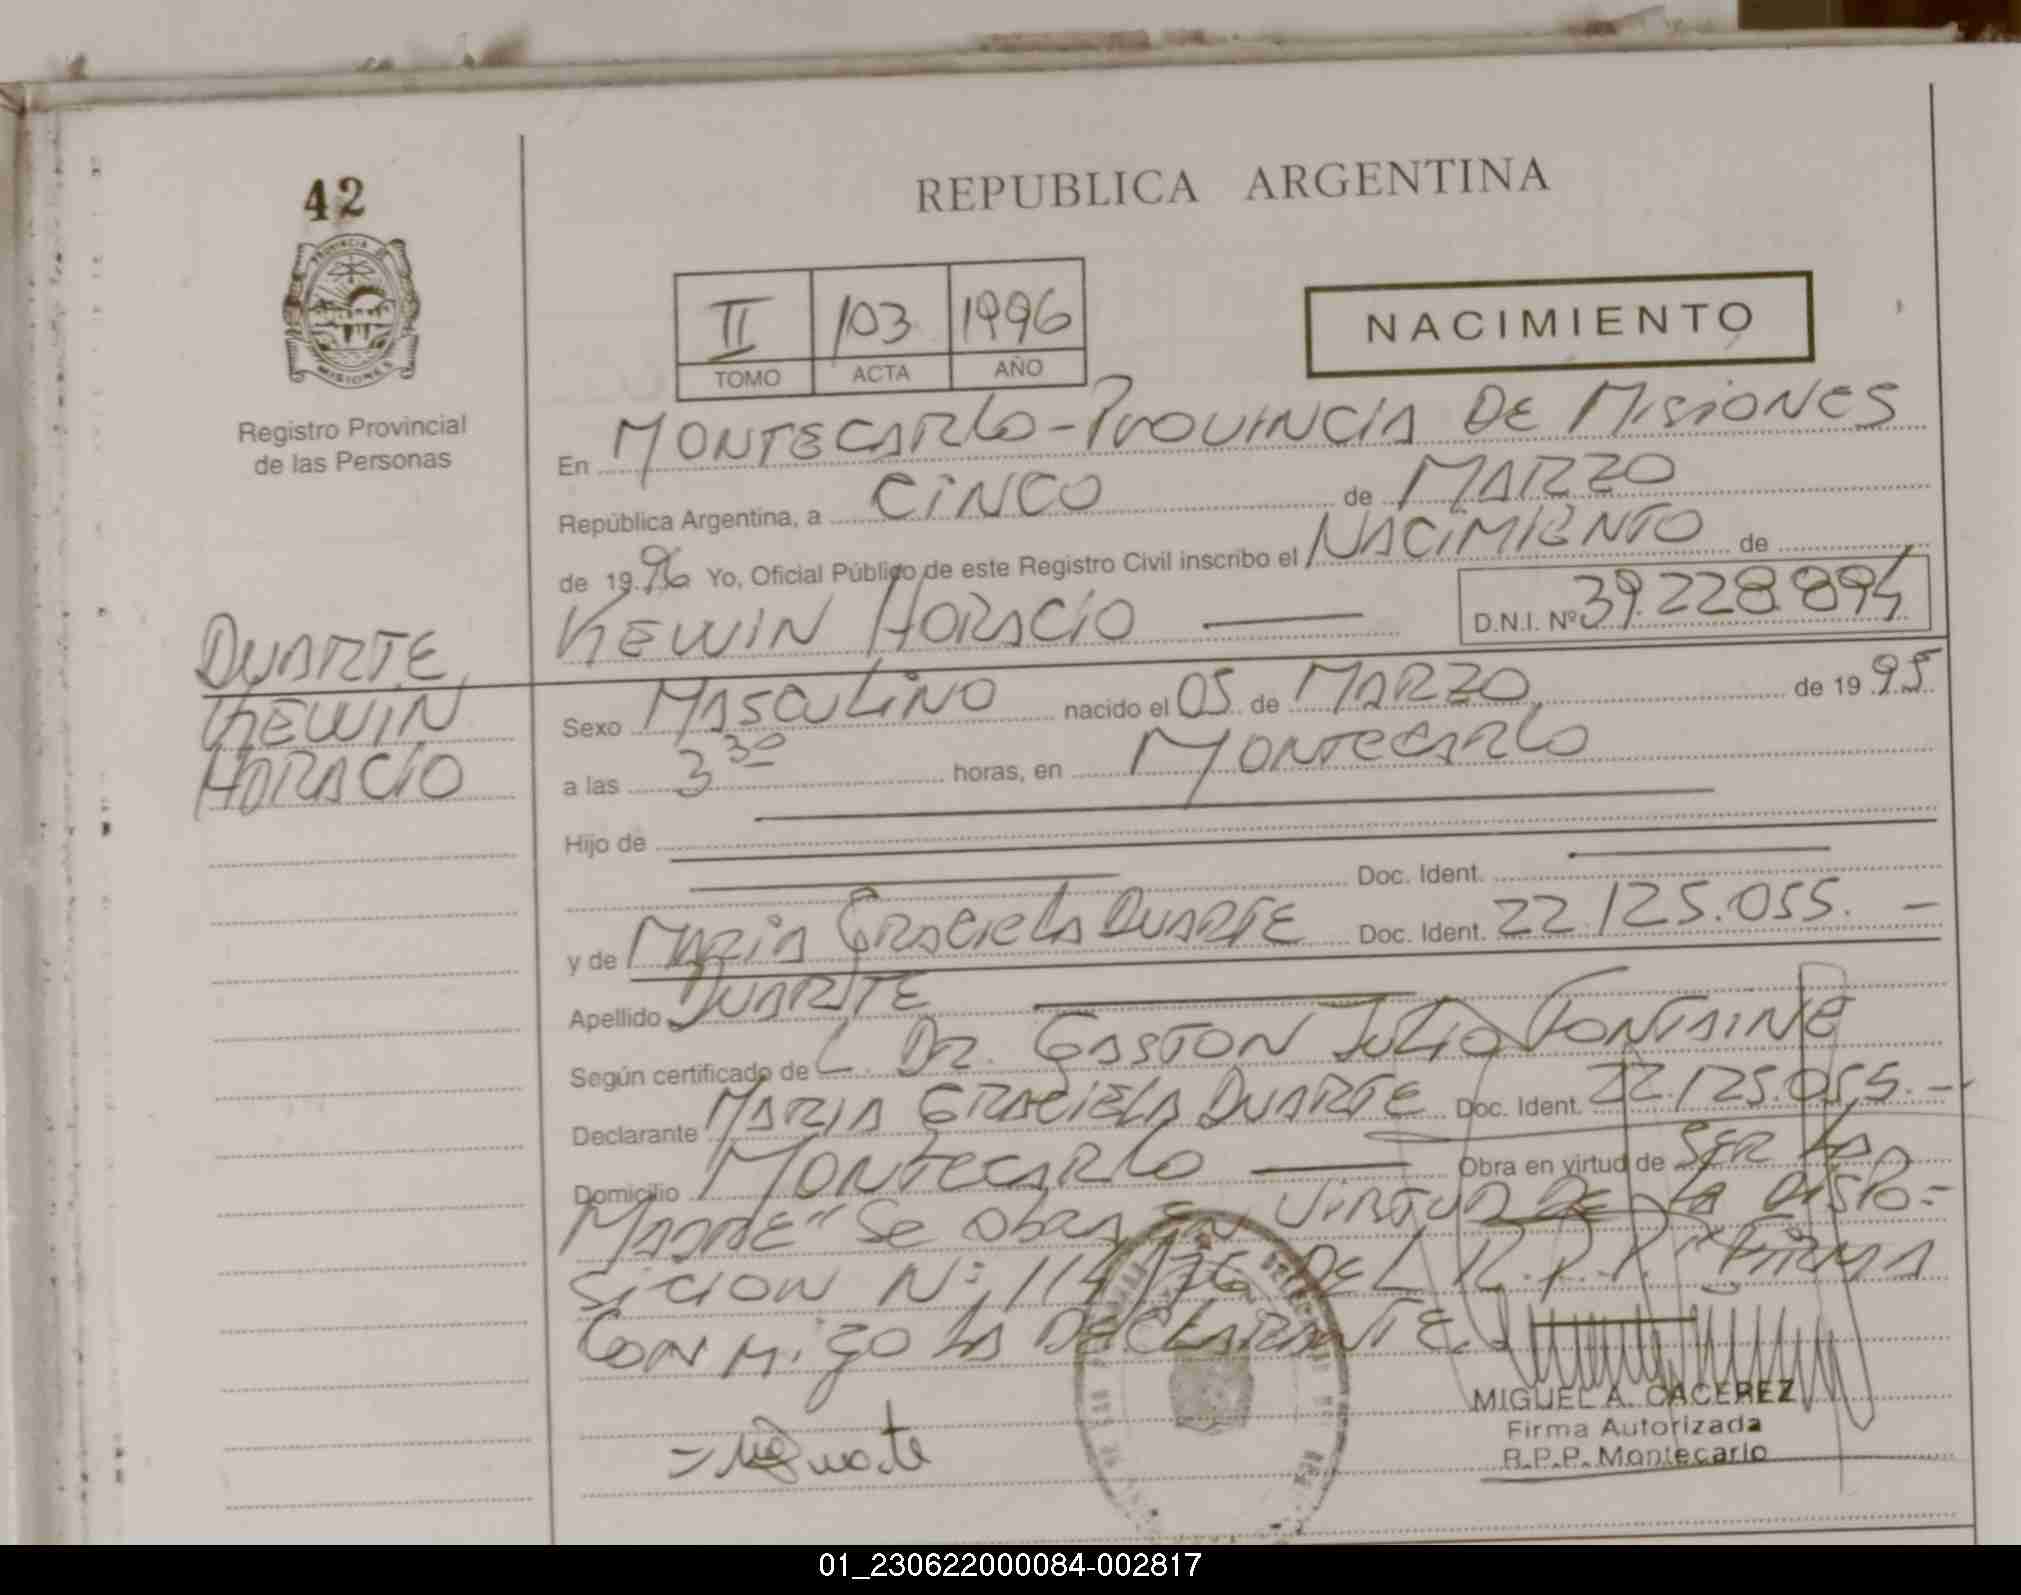 42
PROVINCIA DE
MISIONES
Registro Provincial
de las Personas
REPUBLICA ARGENTINA
II 103 1996
TOMO ACTA AÑO
NACIMIENTO
En MONTECARLO - PROVINCIA DE MISIONES
República Argentina, a CINCO de MARZO
de 1996 Yo, Oficial Público de este Registro Civil inscribo el NACIMIENTO de
KEWIN HORACIO
D.N.I. Nº 39.228.894
DUARTE
KEWIN
HORACIO
Sexo MASCULINO nacido el 05 de MARZO de 1995
a las 3 30 horas, en MONTECARLO
Hijo de
Doc. Ident.
y de MARIA GRACIELA DUARTE Doc. Ident. 22.125.055.-
Apellido DUARTE
Según certificado de L. DR. GASTON JULIO FONTAINE
Declarante MARIA GRACIELA DUARTE Doc. Ident. 22.125.055.-
Domicilio MONTECARLO Obra en virtud de SER LA
MADRE" Se obra EN VIRTUD DE LA DISPO=
SICION Nº 114/76 DEL R.P.P. FIRMA
CONMIGO LA DECLARANTE.
MIGUEL A. CACEREZ
Firma Autorizada
R.P.P. Montecarlo
01_230622000084-002817